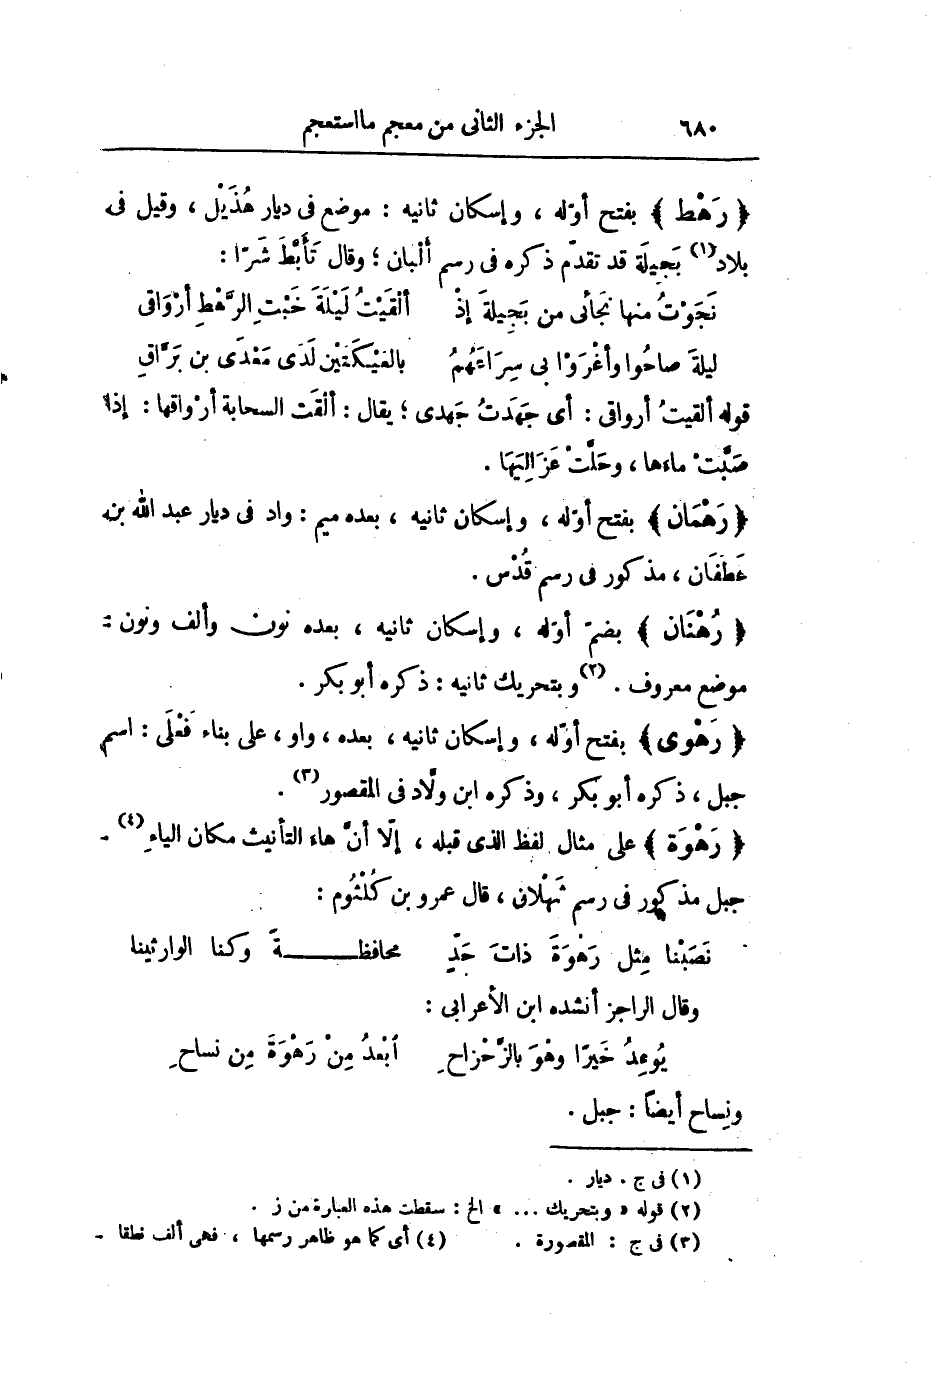 ٦٨٠ الجزء الثانى من معجم مااستعجم
﴿ رَهْط ﴾ بفتح أوّله ، وإسكان ثانيه : موضع فى ديار هُذَيْل ، وقيل فى
بلاد(١) بَجِيلَة قد تقدّم ذكره فى رسم أَلْبان ؛ وقال تَأَبَّطَ شَرًّا :
نَجَوْتُ منها نَجَائى من بَجِيلةَ إذْ ألْقَيْتُ لَيْلَةَ خَبْتِ الرَّهْطِ أرْوَاقى
ليلةَ صاحُوا وأغْرَوْا بى سِرَاعَهُمُ بالعَيْكَتَيْن لَدَى مَعْدَى بن بَرَّاقِ
قوله ألقيتُ أرواقى : أى جَهَدَتُ جَهدى ؛ يقال : ألْقَت السحابة أرْواقها : إذا
صَبَّتْ ماءها ، وحَلَّتْ عَزَالِيَهَا .
﴿ رَهْمَان ﴾ بفتح أوّله ، وإسكان ثانيه ، بعده ميم : واد فى ديار عبد الله بن
غَطَفَان ، مذكور فى رسم قُدْس .
﴿ رُهْنَان ﴾ بضمّ أوّله ، وإسكان ثانيه ، بعده نون وألف ونون :
موضع معروف . (٢) وبتحريك ثانيه : ذكره أبو بكر .
﴿ رَهْوى ﴾ بفتح أوّله ، وإسكان ثانيه ، بعده ، واو ، على بناء فَعْلَى : اسم
جبل ، ذكره أبو بكر ، وذكره ابن ولّاد فى المقصور(٣) .
﴿ رَهْوَة ﴾ على مثال لفظ الذى قبله ، إلّا أنَّ هاء التأنيث مكان الياءِ(٤) .
جبل مذكور فى رسم ثَهْلان ، قال عمرو بن كُلْثُوم :
نَصَبْنا مِثل رَهْوَةَ ذاتَ حَدّ محافظـــــةً وكنا الوارثينا
وقال الراجز أنشده ابن الأعرابى :
يُوعِدُ خَيرًا وهْوَ بالزَّحْزاحِ أبْعدُ مِنْ رَهْوَةَ مِن نساحِ
ونِساح أيضاً : جبل .
(١) فى ج . ديار .
(٢) قوله « وبتحريك ... » الخ : سقطت هذه العبارة من ز .
(٣) فى ج : المقصورة . (٤) أى كما هو ظاهر رسمها ، فهى ألف نطقا .